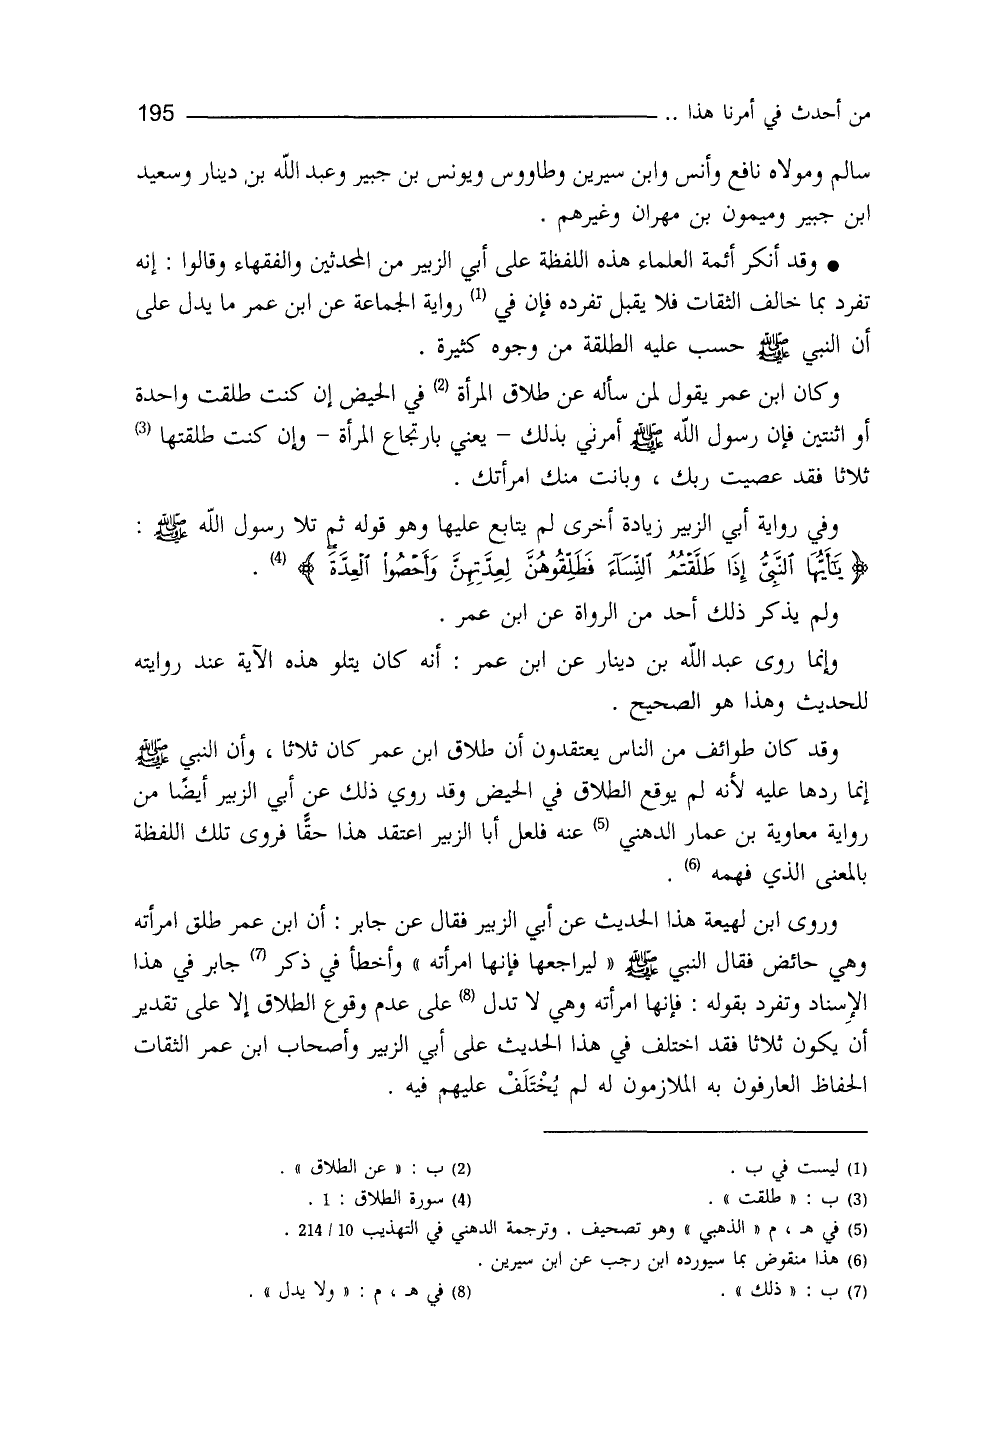 من أحدث في أمرنا هذا .. 195
سالم ومولاه نافع وأنس وابن سيرين وطاووس ويونس بن جبير وعبد الله بن دينار وسعيد
ابن جبير وميمون بن مهران وغيرهم .
● وقد أنكر أئمة العلماء هذه اللفظة على أبي الزبير من المحدثين والفقهاء وقالوا : إنه
تفرد بما خالف الثقات فلا يقبل تفرده فإن في (1) رواية الجماعة عن ابن عمر ما يدل على
أن النبي ﷺ حسب عليه الطلقة من وجوه كثيرة .
وكان ابن عمر يقول لمن سأله عن طلاق المرأة (2) في الحيض إن كنت طلقت واحدة
أو اثنتين فإن رسول الله ﷺ أمرني بذلك – يعني بارتجاع المرأة – وإن كنت طلقتها (3)
ثلاثا فقد عصيت ربك ، وبانت منك امرأتك .
وفي رواية أبي الزبير زيادة أخرى لم يتابع عليها وهو قوله ثم تلا رسول الله ﷺ :
﴿ يَٰٓأَيُّهَا ٱلنَّبِيُّ إِذَا طَلَّقْتُمُ ٱلنِّسَآءَ فَطَلِّقُوهُنَّ لِعِدَّتِهِنَّ وَأَحْصُوا۟ ٱلْعِدَّةَ ۖ ﴾ (4) .
ولم يذكر ذلك أحد من الرواة عن ابن عمر .
وإنما روى عبد الله بن دينار عن ابن عمر : أنه كان يتلو هذه الآية عند روايته
للحديث وهذا هو الصحيح .
وقد كان طوائف من الناس يعتقدون أن طلاق ابن عمر كان ثلاثا ، وأن النبي ﷺ
إنما ردها عليه لأنه لم يوقع الطلاق في الحيض وقد روي ذلك عن أبي الزبير أيضًا من
رواية معاوية بن عمار الدهني (5) عنه فلعل أبا الزبير اعتقد هذا حقًّا فروى تلك اللفظة
بالمعنى الذي فهمه (6) .
وروى ابن لهيعة هذا الحديث عن أبي الزبير فقال عن جابر : أن ابن عمر طلق امرأته
وهي حائض فقال النبي ﷺ « ليراجعها فإنها امرأته » وأخطأ في ذكر (7) جابر في هذا
الإِسناد وتفرد بقوله : فإنها امرأته وهي لا تدل (8) على عدم وقوع الطلاق إلا على تقدير
أن يكون ثلاثا فقد اختلف في هذا الحديث على أبي الزبير وأصحاب ابن عمر الثقات
الحفاظ العارفون به الملازمون له لم يُخْتَلَفْ عليهم فيه .
(1) ليست في ب . (2) ب : « عن الطلاق » .
(3) ب : « طلقت » . (4) سورة الطلاق : 1 .
(5) في هـ ، م « الذهبي » وهو تصحيف . وترجمة الدهني في التهذيب 10 / 214 .
(6) هذا منقوض بما سيورده ابن رجب عن ابن سيرين .
(7) ب : « ذلك » . (8) في هـ ، م : « ولا يدل » .